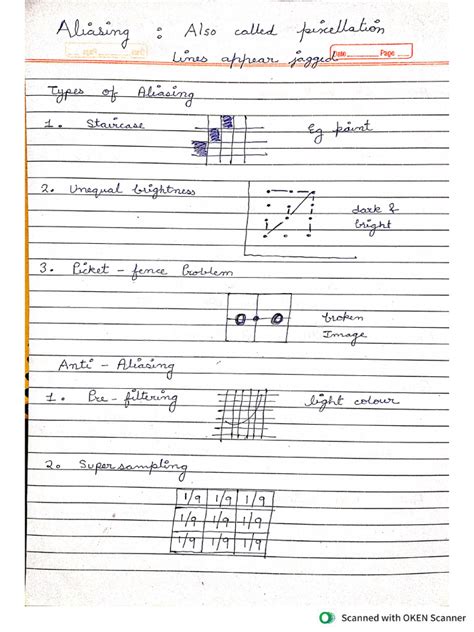 Aliasing : Also called pixellation
Date Page
Lines appear jagged
Types of Aliasing
1. Staircase Eg paint
2. Unequal brightness
dark &
bright
3. Picket - fence Problem
broken
Image
Anti - Aliasing
1. Pre - filtering light colour
2. Supersampling
1/9 1/9 1/9
1/9 1/9 1/9
1/9 1/9 1/9
Scanned with OKEN Scanner